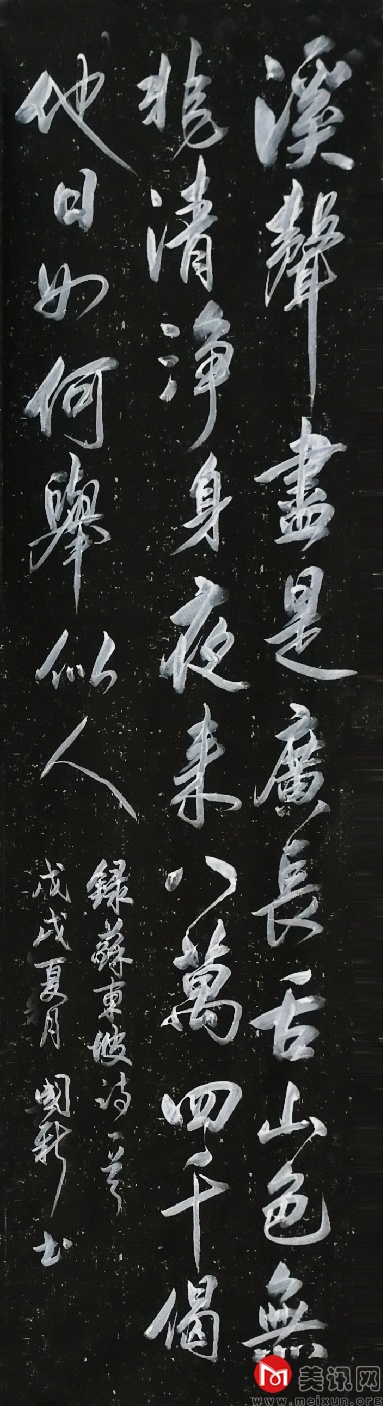 溪聲盡是廣長舌山色無
非清淨身夜来八萬四千偈
他日如何舉似人
録蘇東坡诗一首
戊戌夏月國新书
美讯网
www.meixun.org